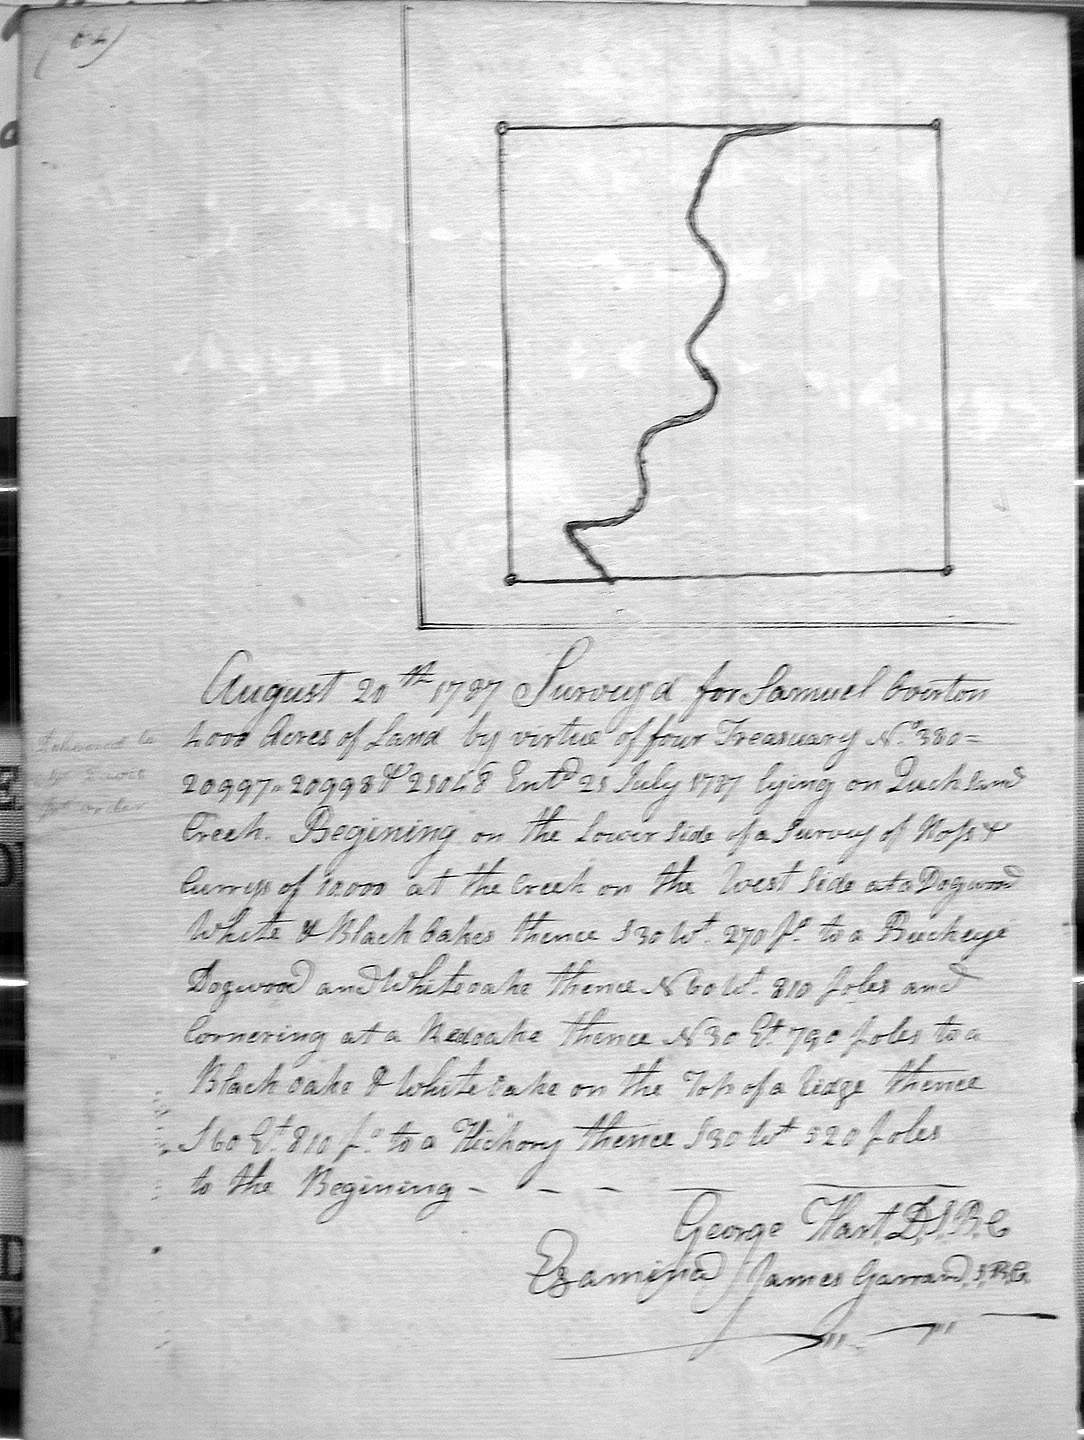 August 20th 1787 Survey'd for Samuel Overton
4000 Acres of Land by virtue of four Treasuary No 380=
20997=20998 & 21048 Entd 21 July 1787 lying on
Creek. Begining on the Lower Side of a Survey of &
of 10.000 at the Creek on the West Side at a Dogwood
White & Black Oakes thence S 30 Wt. 270 po. to a Buckeye
Dogwood and White oake thence N 60 Wt. 810 poles and
Cornering at a Redoake thence N 30 Et 790 poles to a
Black oake & White oake on the Top of a Ridge thence
S 60 Et. 810 po. to a Hickory thence S 30 Wt 520 poles
to the Begining - - - - —
George Hart. D.S.B.C
Examined James Garrard. S.B.C.
Delivered to
order